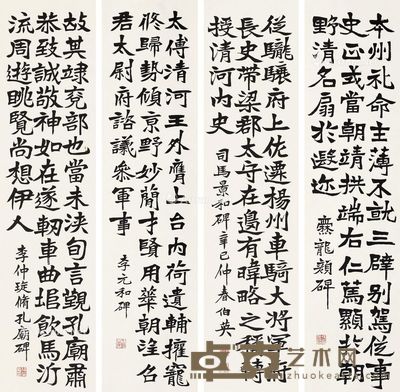 本州礼命主薄不就三辟别駕従事
史正或當朝靖拱端右仁篤顯於朝
野清名扇於遐迩 爨龍顏碑
従驤府上佐楊州車騎大將軍
長史帯梁郡太守在邊有暐略之稱轉
授清河内史 司馬景和碑 辛巳仲春伯英
太傅清河王外膺上台内荷遺輔擢寵
攸歸勢傾京野妙簡才賢用華朝注召
君太尉府諮議叅軍事 李元和碑
故其竦兖部也當未浹旬言覲孔廟肅
恭致誠敬神如在遂軔車曲埠飲馬沂
流周遊眺覽尚想伊人 李仲琁脩孔廟碑
艺术网